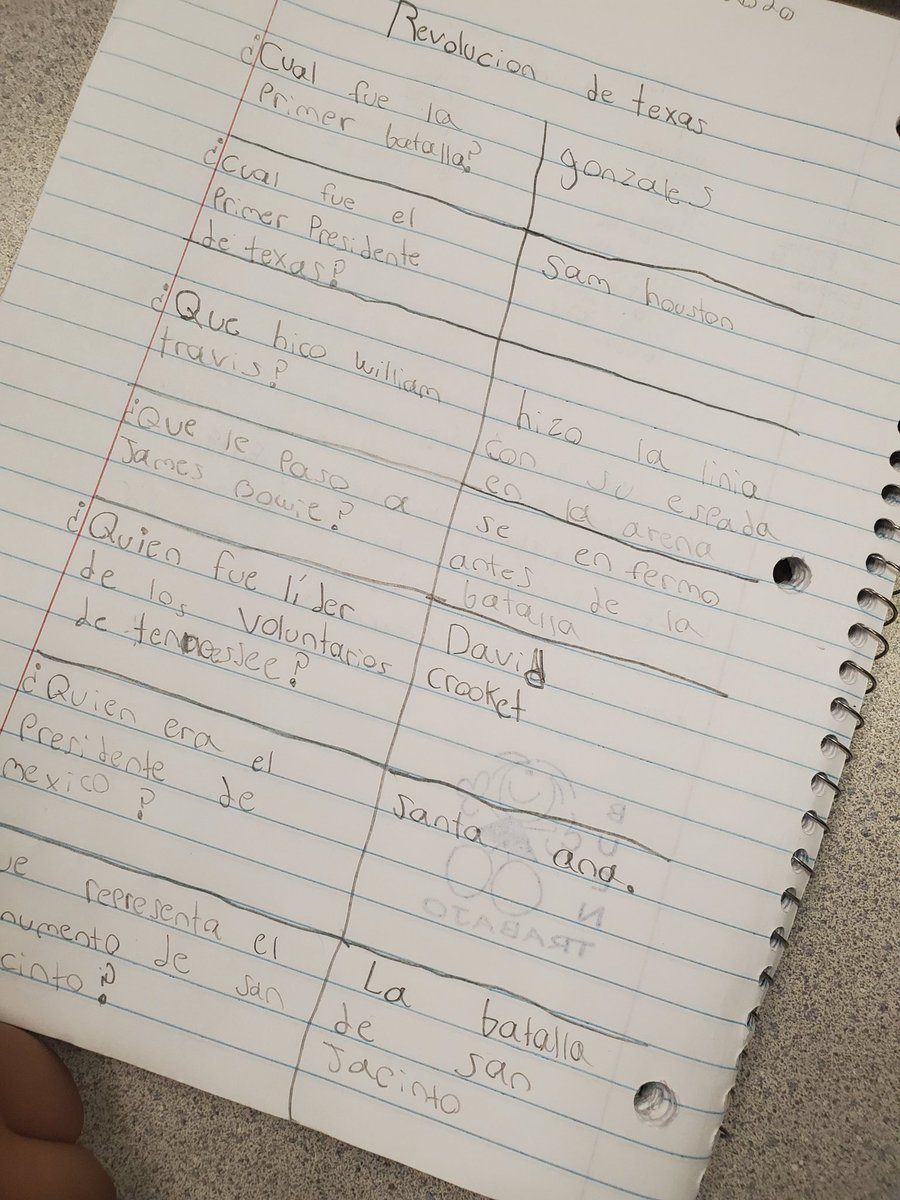 Revolucion de texas
¿Cual fue la
Primer batalla?
gonzales
¿Cual fue el
Primer Presidente
de texas?
Sam houston
¿Que hico william
travis?
hizo la linia
con su espada
en la arena
¿Que le Paso a
James Bowie?
se en fermo
antes de la
batalla
¿Quien fue líder
de los voluntarios
de tennessee?
David
Crooket
¿Quien era el
Presidente de
mexico?
Santa ana.
ue representa el
numento de san
cinto?
La batalla
de san
Jacinto
BUEN
TRABAJO